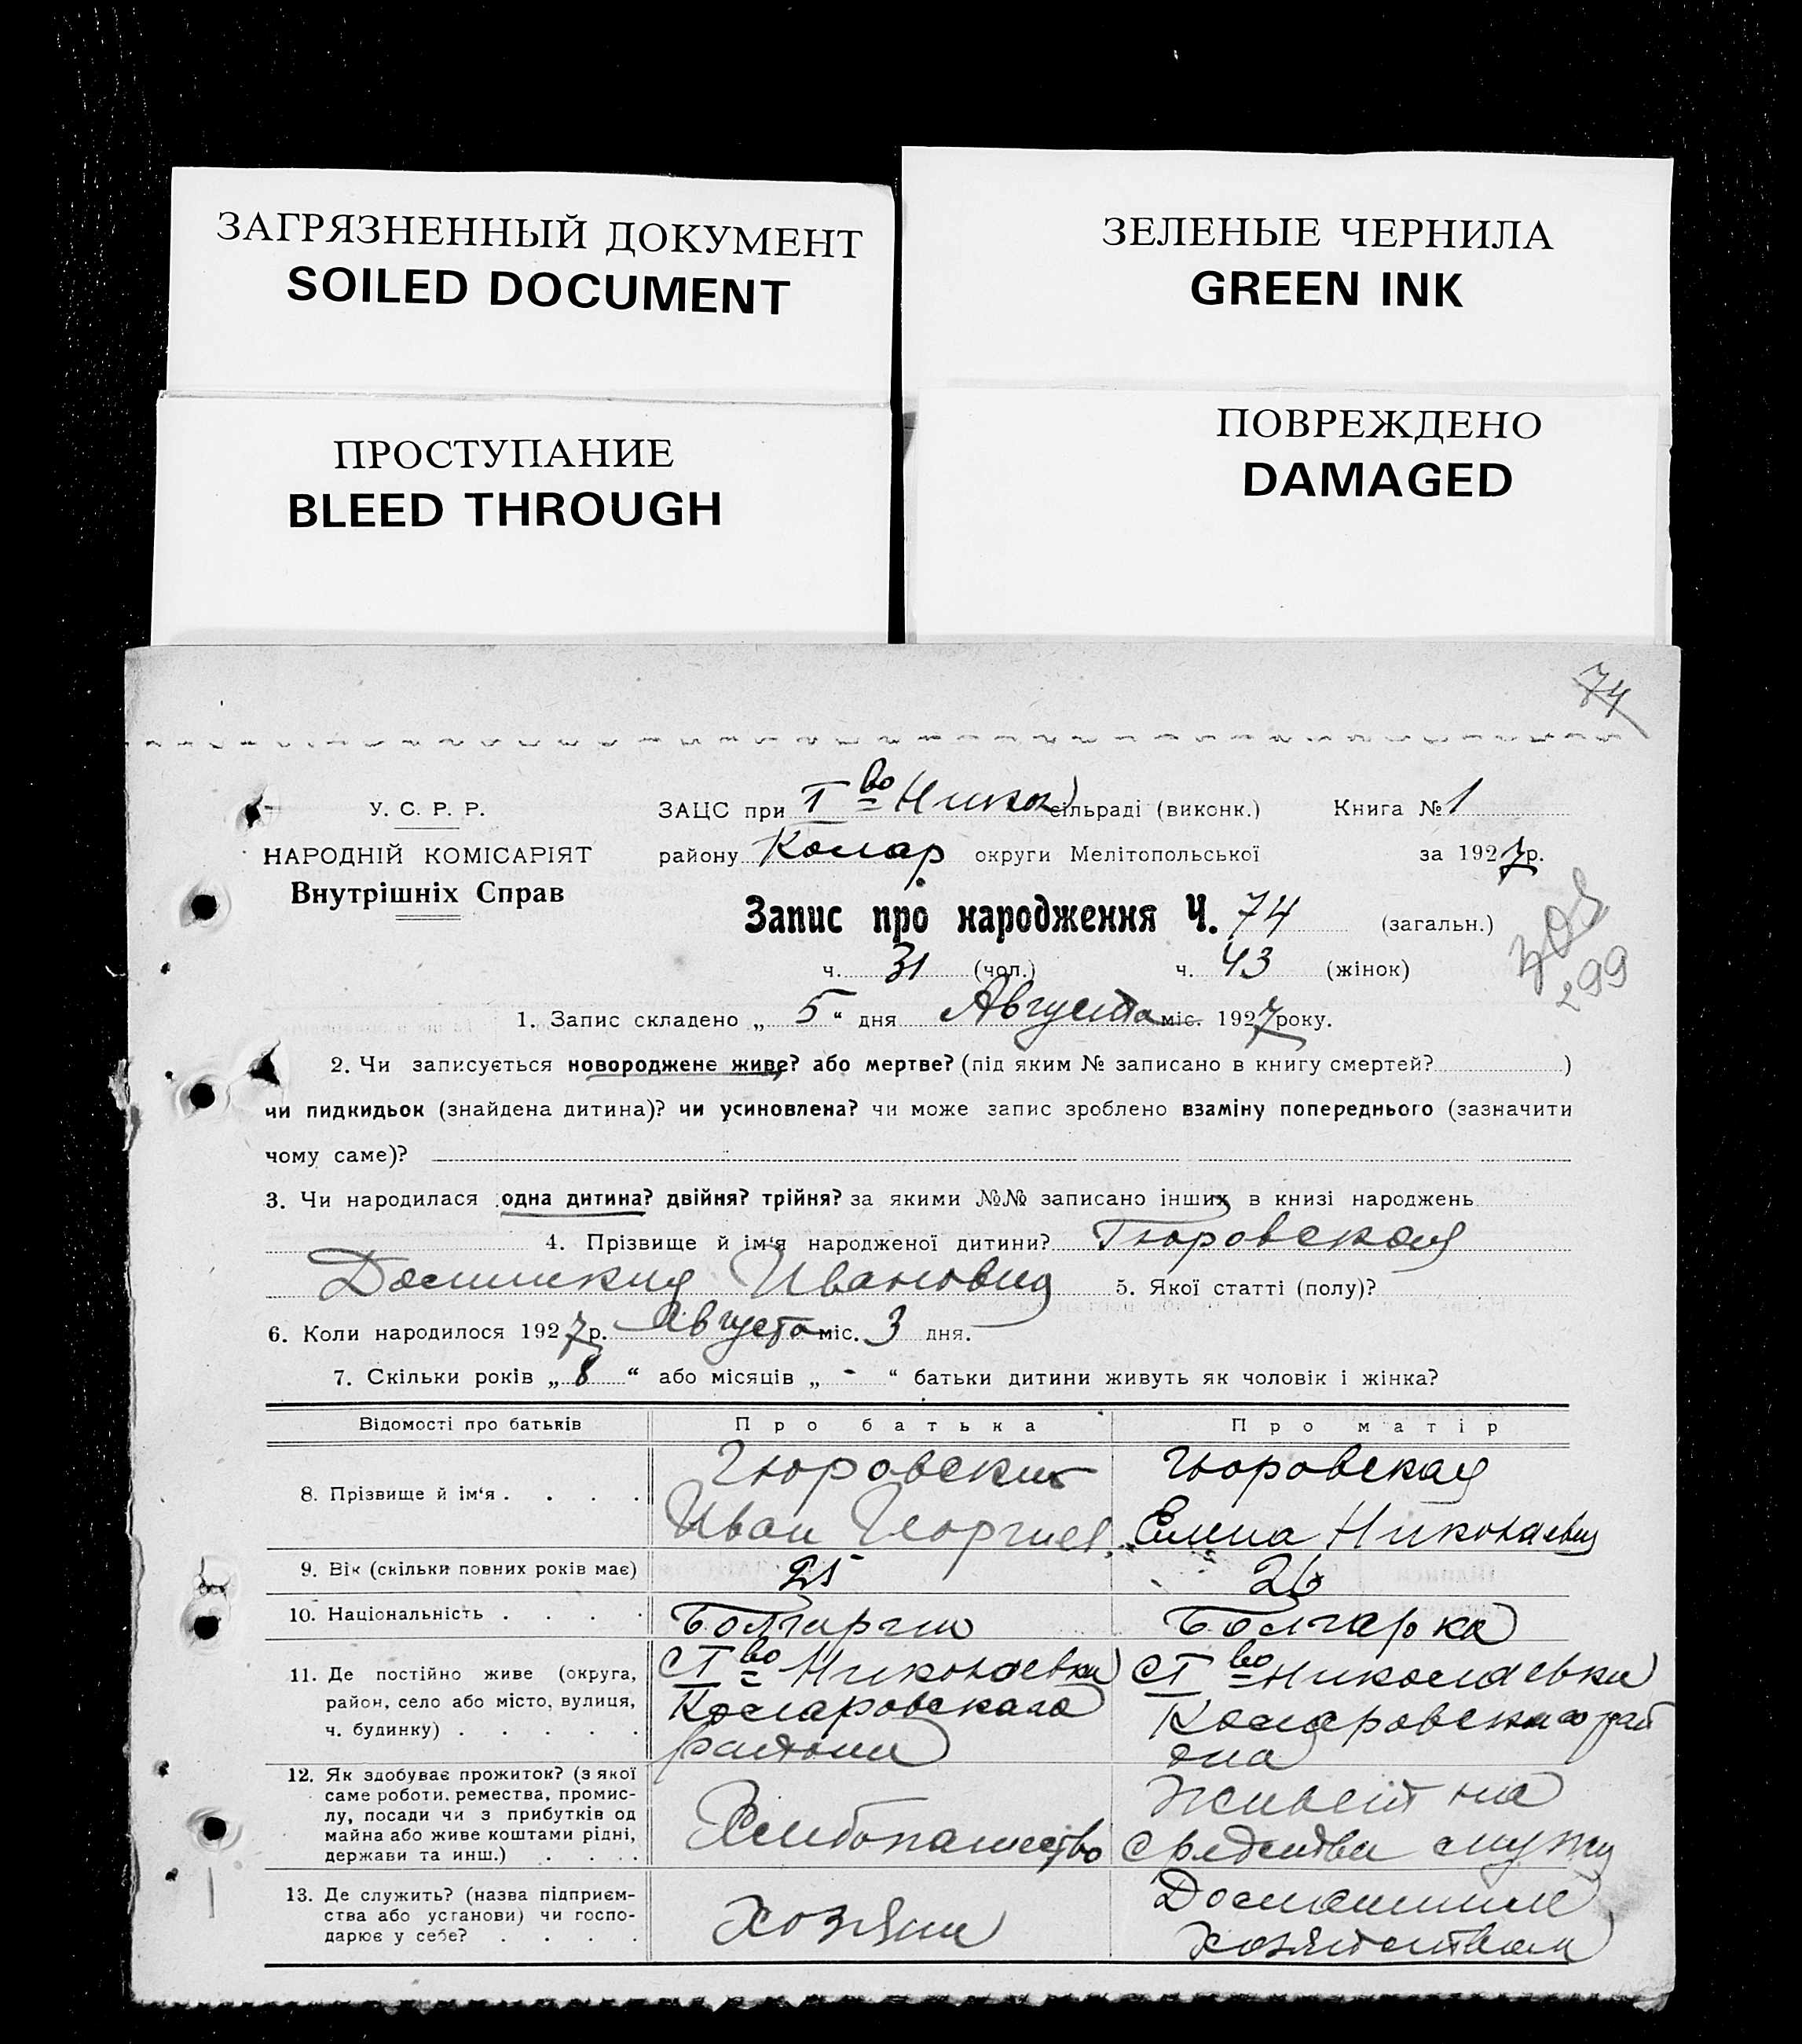 ЗАГРЯЗНЕННЫЙ ДОКУМЕНТ
SOILED DOCUMENT
ЗЕЛЕНЫЕ ЧЕРНИЛА
GREEN INK
ПРОСТУПАНИЕ
BLEED THROUGH
ПОВРЕЖДЕНО
DAMAGED
74
У. С. Р. Р.
НАРОДНІЙ КОМІСАРІЯТ
Внутрішніх Справ
ЗАЦС при I во Никол сільраді (виконк.) Книга № 1
району Комар округи Мелітопольської за 1927 р.
Запис про народження Ч. 74 (загальн.)
ч. 31 (чол.) ч. 43 (жінок)
299
1. Запис складено „ 5 “ дня Августа міс. 1927 року.
2. Чи записується новороджене живе? або мертве? (під яким № записано в книгу смертей? )
чи пидкидьок (знайдена дитина)? чи усиновлена? чи може запис зроблено взаміну попереднього (зазначити
чому саме)?
3. Чи народилася одна дитина? двійня? трійня? за якими №№ записано інших в книзі народжень
4. Прізвище й ім‘я народженої дитини? Гюровская
Домникия Ивановна 5. Якої статті (полу)?
6. Коли народилося 1927 р. Августа міс. 3 дня.
7. Скільки років „ 8 “ або місяців „ - “ батьки дитини живуть як чоловік і жінка?
Відомості про батьків Про батька Про матір
8. Прізвище й ім‘я . . . . Гюровский Гюровская
Иван Георгиев. Елена Николаевна
9. Вік (скільки повних років має) 25 26
10. Національність . . . . Болгарин Болгарка
11. Де постійно живе (округа, район, село або місто, вулиця, ч. будинку) . . . . .
с I во Николаевка
Комаровскаго
района
с I во Николаевка
Комаровскаго рай
она
12. Як здобуває прожиток? (з якої саме роботи, ремества, промислу, посади чи з прибутків од майна або живе коштами рідні, держави та инш.) . . . .
Хлебопашество
Живет на
средства мужа
13. Де служить? (назва підприємства або установи) чи господарює у себе? . . . .
Хозяин
Домашним
хозяйством